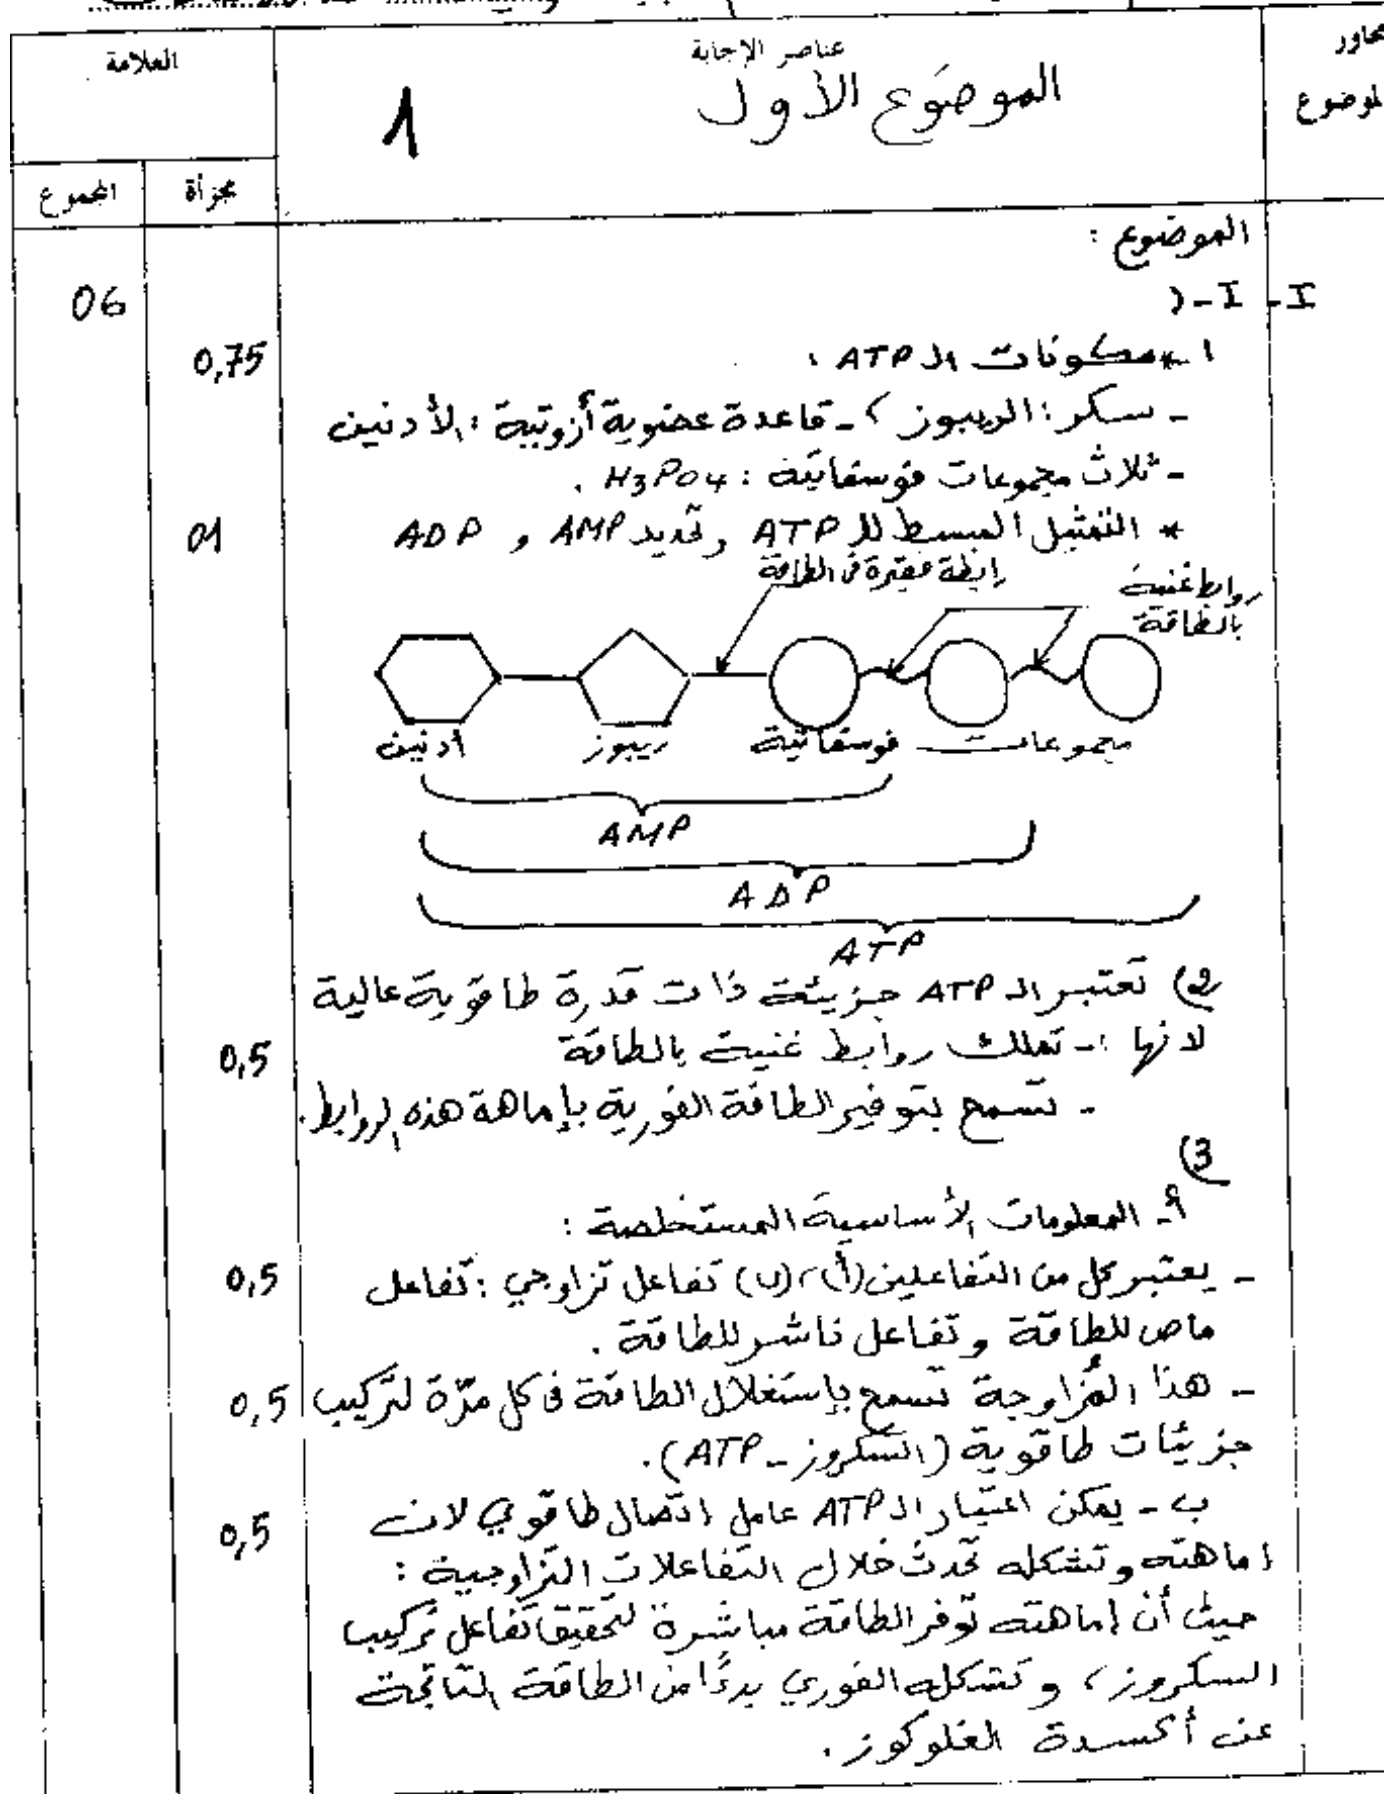 محاور
الموضوع
عناصر الإجابة
الموضوع الأول
1
العلامة
مجزأة
المجموع
الموضوع :
I - I - (
06
1 * مكونات الـ ATP :
0,75
- سكر : الريبوز ، - قاعدة عضوية أزوتية : الأدنين
- ثلاث مجموعات فوسفاتية : H3PO4 .
* التمثيل المبسط للـ ATP وتحديد AMP و ADP
01
رابطة فقيرة في الطاقة
روابط غنية
بالطاقة
أدنين
ريبوز
مجموعات فوسفاتية
AMP
ADP
ATP
2) تعتبر الـ ATP جزيئة ذات قدرة طاقوية عالية
لانها :- تملك روابط غنية بالطاقة
0,5
- تسمح بتوفير الطاقة الفورية بإماهة هذه الروابط.
3)
أ- المعلومات الأساسية المستخلصة :
- يعتبر كل من التفاعلين (أ) ، (ب) تفاعل تزاوجي : تفاعل
0,5
ماص للطاقة و تفاعل ناشر للطاقة .
- هذا المزاوجة تسمح بإستغلال الطاقة في كل مرّة لتركيب
0,5
جزيئات طاقوية (السكروز - ATP).
ب - يمكن اعتبار الـ ATP عامل اتصال طاقوي لان
0,5
اماهته وتشكله تحدث خلال التفاعلات التزاوجية :
حيث أن إماهته توفر الطاقة مباشرة لتحقيق تفاعل تركيب
السكروز ، و تشكله الفوري بدءًا من الطاقة الناتجة
عن أكسدة الغلوكوز .